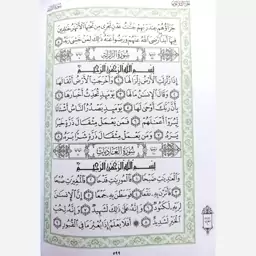 جَزَآؤُهُمْ عِندَ رَبِّهِمْ جَنَّٰتُ عَدْنٍ تَجْرِى مِن تَحْتِهَا ٱلْأَنْهَٰرُ خَٰلِدِينَ
فِيهَآ أَبَدًا رَّضِىَ ٱللَّهُ عَنْهُمْ وَرَضُوا۟ عَنْهُ ذَٰلِكَ لِمَنْ خَشِىَ رَبَّهُۥ ٨
سُورَةُ الزَّلْزَلَةِ
بِسْمِ ٱللَّهِ ٱلرَّحْمَٰنِ ٱلرَّحِيمِ
إِذَا زُلْزِلَتِ ٱلْأَرْضُ زِلْزَالَهَا ١ وَأَخْرَجَتِ ٱلْأَرْضُ أَثْقَالَهَا
٢ وَقَالَ ٱلْإِنسَٰنُ مَا لَهَا ٣ يَوْمَئِذٍ تُحَدِّثُ أَخْبَارَهَا ٤
بِأَنَّ رَبَّكَ أَوْحَىٰ لَهَا ٥ يَوْمَئِذٍ يَصْدُرُ ٱلنَّاسُ أَشْتَاتًا
لِّيُرَوْا۟ أَعْمَٰلَهُمْ ٦ فَمَن يَعْمَلْ مِثْقَالَ ذَرَّةٍ خَيْرًا
يَرَهُۥ ٧ وَمَن يَعْمَلْ مِثْقَالَ ذَرَّةٍ شَرًّا يَرَهُۥ ٨
سُورَةُ العَادِيَاتِ
بِسْمِ ٱللَّهِ ٱلرَّحْمَٰنِ ٱلرَّحِيمِ
وَٱلْعَٰدِيَٰتِ ضَبْحًا ١ فَٱلْمُورِيَٰتِ قَدْحًا ٢ فَٱلْمُغِيرَٰتِ صُبْحًا
٣ فَأَثَرْنَ بِهِۦ نَقْعًا ٤ فَوَسَطْنَ بِهِۦ جَمْعًا ٥ إِنَّ ٱلْإِنسَٰنَ
لِرَبِّهِۦ لَكَنُودٌ ٦ وَإِنَّهُۥ عَلَىٰ ذَٰلِكَ لَشَهِيدٌ ٧ وَإِنَّهُۥ لِحُبِّ
ٱلْخَيْرِ لَشَدِيدٌ ٨ أَفَلَا يَعْلَمُ إِذَا بُعْثِرَ مَا فِى ٱلْقُبُورِ ٩
٥٩٩